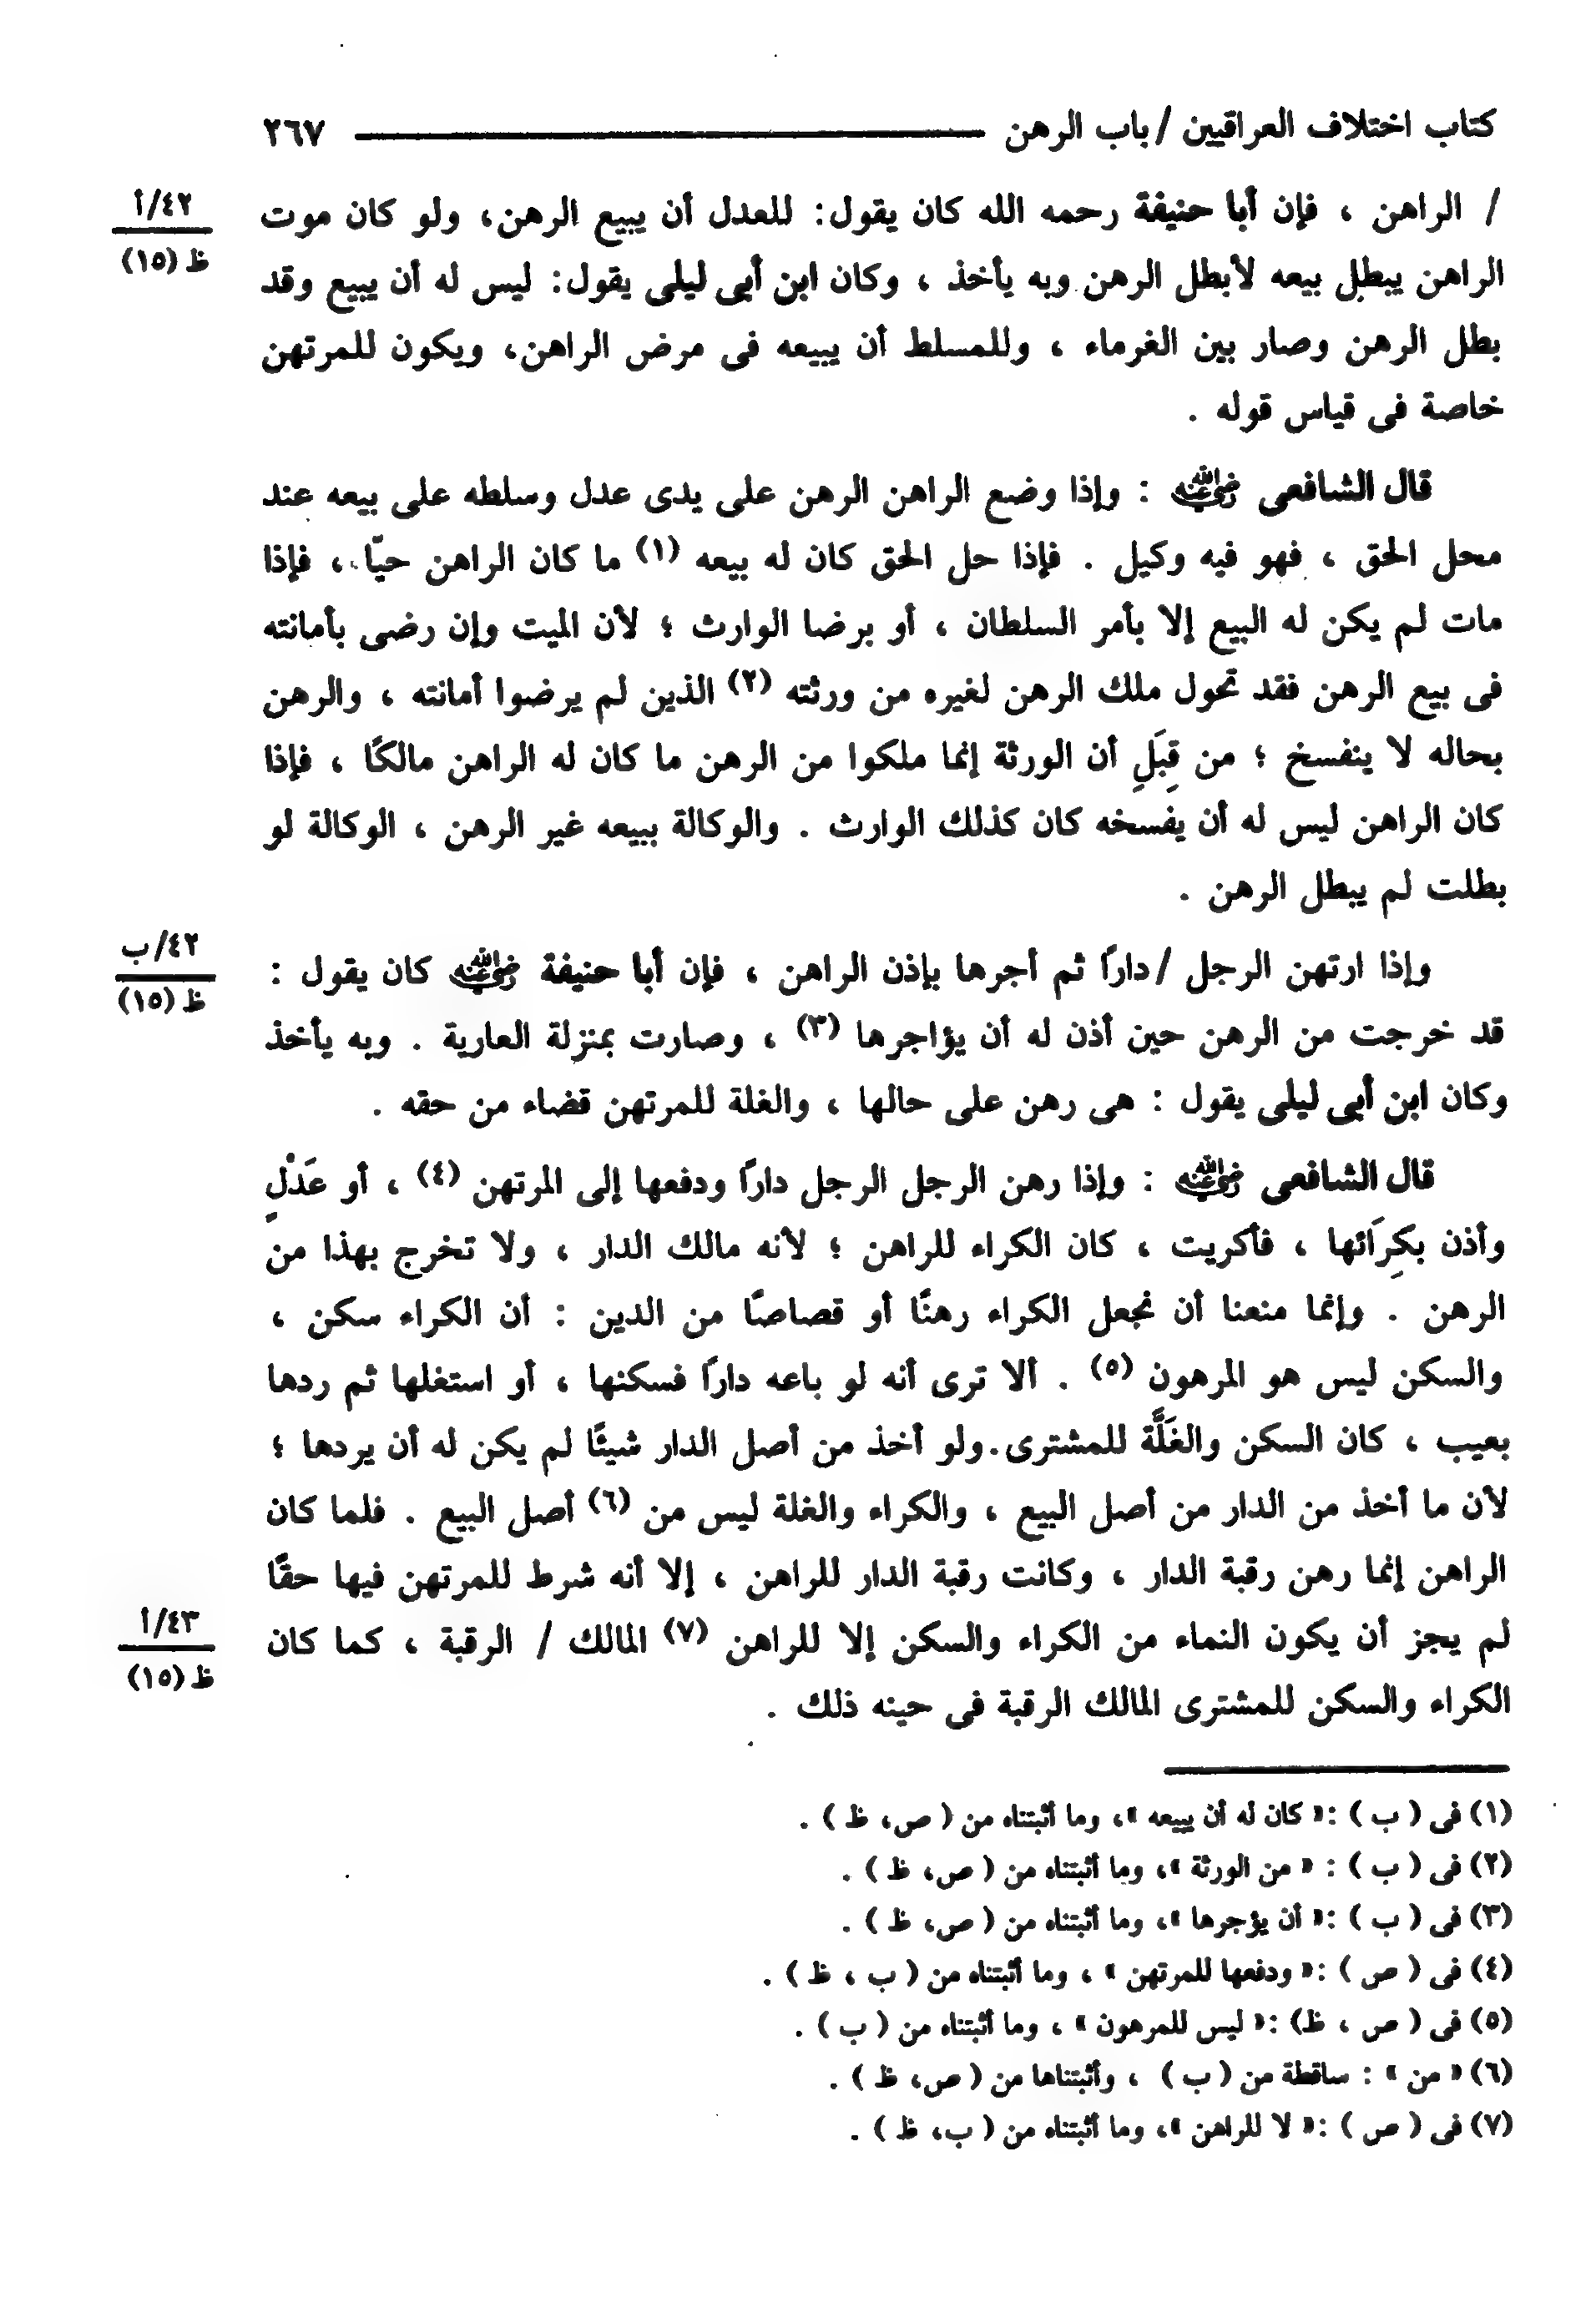 كتاب اختلاف العراقيين / باب الرهن ٢٦٧
/ الراهن ، فإن أبا حنيفة رحمه الله كان يقول: للعدل أن يبيع الرهن، ولو كان موت
٤٢/أ
ظ (١٥)
الراهن يبطل بيعه لأبطل الرهن وبه يأخذ ، وكان ابن أبى ليلى يقول: ليس له أن يبيع وقد
بطل الرهن وصار بين الغرماء ، وللمسلط أن يبيعه فى مرض الراهن، ويكون للمرتهن
خاصة فى قياس قوله .
قال الشافعى رضي الله عنه : وإذا وضع الراهن الرهن على يدى عدل وسلطه على بيعه عند
محل الحق ، فهو فيه وكيل . فإذا حل الحق كان له بيعه (١) ما كان الراهن حيًا ، فإذا
مات لم يكن له البيع إلا بأمر السلطان ، أو برضا الوارث ؛ لأن الميت وإن رضى بأمانته
فى بيع الرهن فقد تحول ملك الرهن لغيره من ورثته (٢) الذين لم يرضوا أمانته ، والرهن
بحاله لا ينفسخ ؛ من قِبَلِ أن الورثة إنما ملكوا من الرهن ما كان له الراهن مالكًا ، فإذا
كان الراهن ليس له أن يفسخه كان كذلك الوارث . والوكالة ببيعه غير الرهن ، الوكالة لو
بطلت لم يبطل الرهن .
وإذا ارتهن الرجل /دارًا ثم أجرها بإذن الراهن ، فإن أبا حنيفة رضي الله عنه كان يقول :
٤٢/ب
ظ (١٥)
قد خرجت من الرهن حين أذن له أن يؤاجرها (٣) ، وصارت بمنزلة العارية . وبه يأخذ
وكان ابن أبى ليلى يقول : هى رهن على حالها ، والغلة للمرتهن قضاء من حقه .
قال الشافعى رضي الله عنه : وإذا رهن الرجل الرجل دارًا ودفعها إلى المرتهن (٤) ، أو عَدْلٍ
وأذن بكِرَائها ، فأكريت ، كان الكراء للراهن ؛ لأنه مالك الدار ، ولا تخرج بهذا من
الرهن . وإنما منعنا أن نجعل الكراء رهنًا أو قصاصًا من الدين : أن الكراء سكن ،
والسكن ليس هو المرهون (٥) . ألا ترى أنه لو باعه دارًا فسكنها ، أو استغلها ثم ردها
بعيب ، كان السكن والغَلَّة للمشترى.ولو أخذ من أصل الدار شيئًا لم يكن له أن يردها ؛
لأن ما أخذ من الدار من أصل البيع ، والكراء والغلة ليس من (٦) أصل البيع . فلما كان
الراهن إنما رهن رقبة الدار ، وكانت رقبة الدار للراهن ، إلا أنه شرط للمرتهن فيها حقًا
لم يجز أن يكون النماء من الكراء والسكن إلا للراهن (٧) المالك / الرقبة ، كما كان
٤٣/أ
ظ (١٥)
الكراء والسكن للمشترى المالك الرقبة فى حينه ذلك .
(١) فى ( ب ) :« كان له أن يبيعه »، وما أثبتناه من ( ص، ظ ) .
(٢) فى ( ب ) : « من الورثة »، وما أثبتناه من ( ص، ظ ) .
(٣) فى ( ب ) :« أن يؤجرها »، وما أثبتناه من ( ص، ظ ) .
(٤) فى ( ص ) :« ودفعها للمرتهن » ، وما أثبتناه من ( ب ، ظ ) .
(٥) فى ( ص ، ظ) :« ليس للمرهون » ، وما أثبتناه من ( ب ) .
(٦) « من » : ساقطة من ( ب ) ، وأثبتناها من ( ص، ظ ) .
(٧) فى ( ص ) :« لا للراهن »، وما أثبتناه من ( ب، ظ ) .